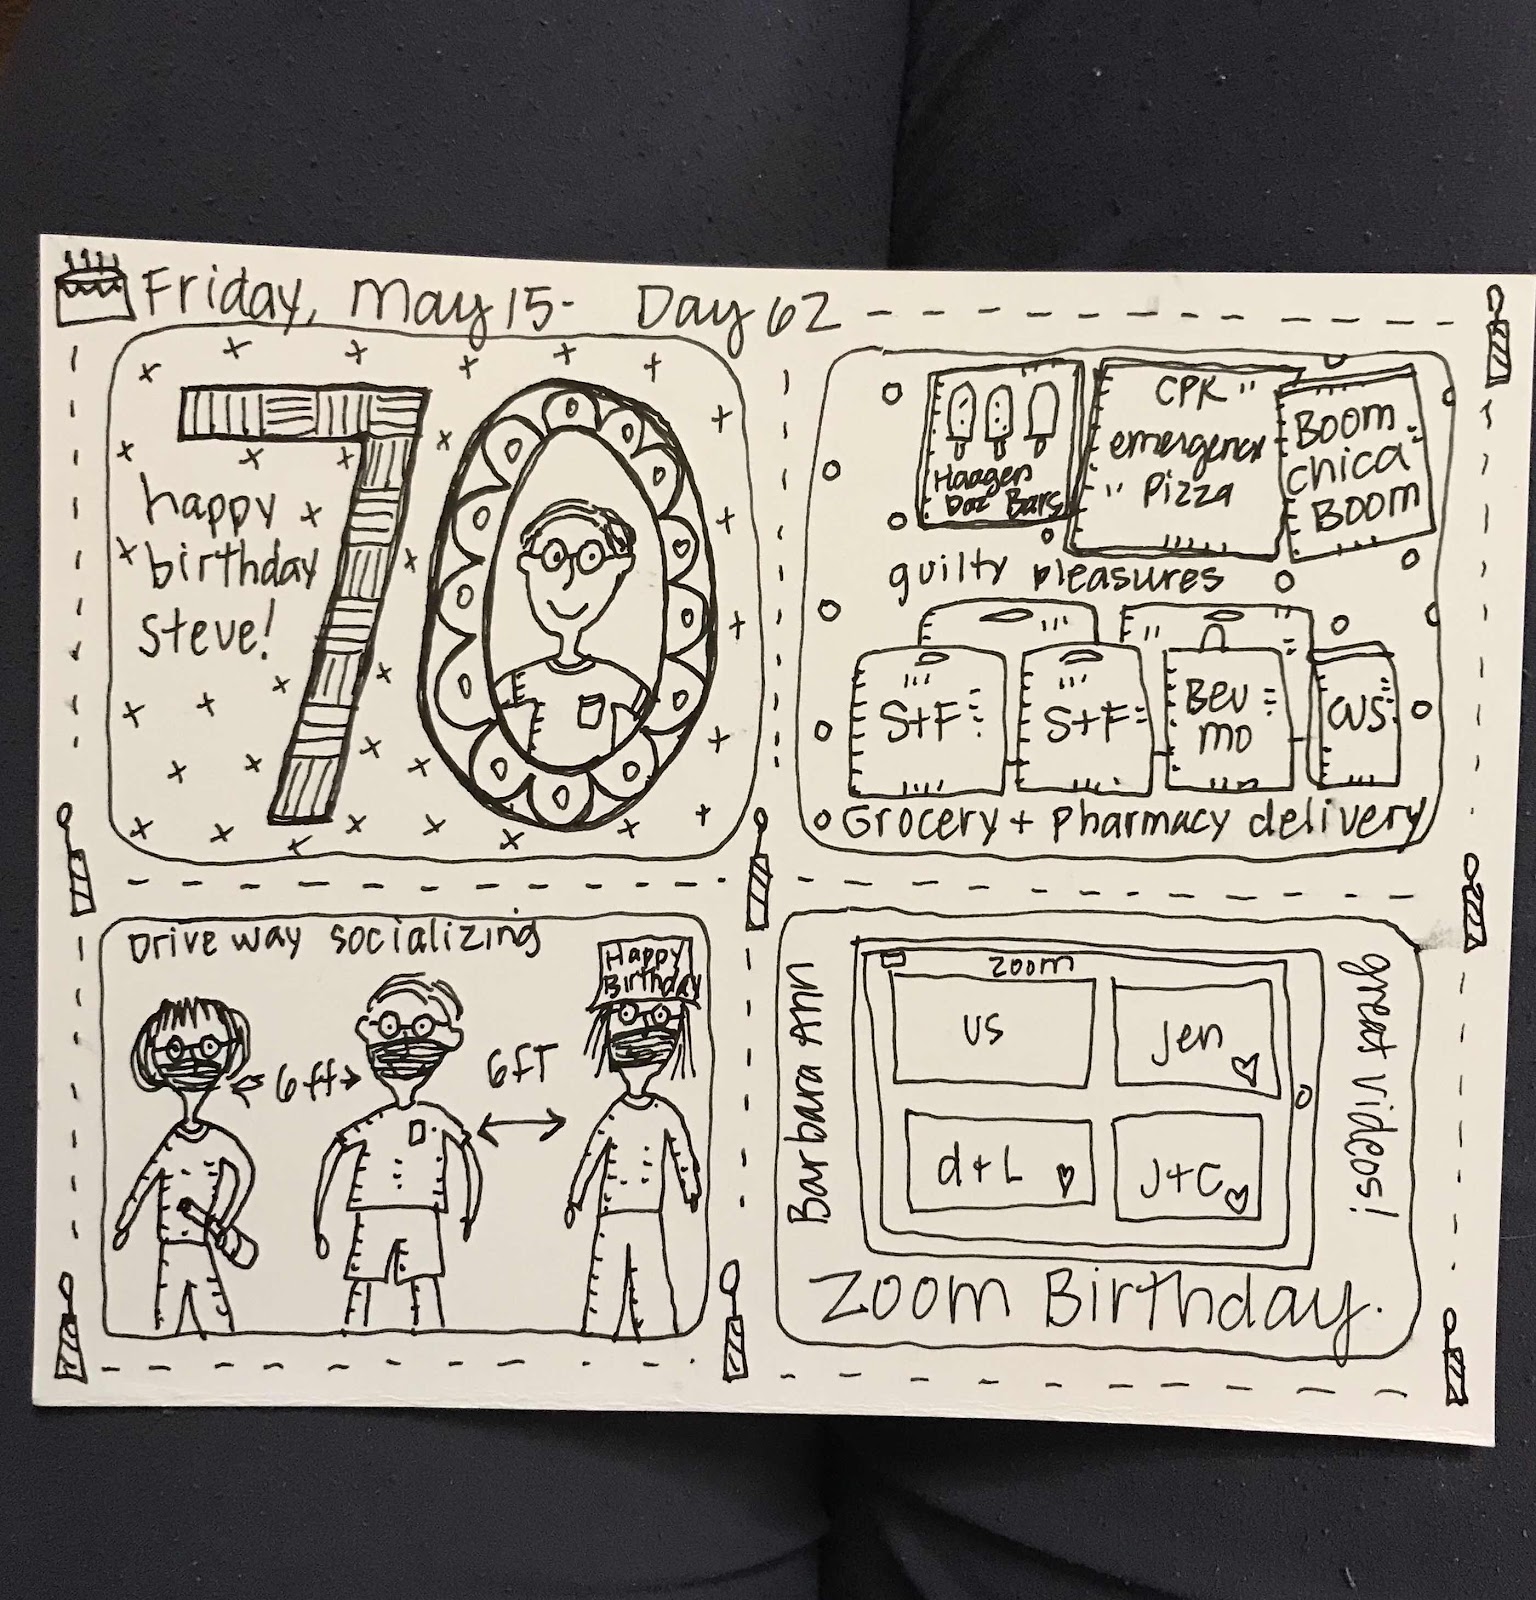 Friday, May 15- Day 62
70
happy
birthday
Steve!
Haagen
Daz Bars
CPK
"emergency"
Pizza
Boom
chica
Boom
guilty pleasures
S+F
S+F
Bev
mo
CVS
Grocery + Pharmacy delivery
Driveway socializing
Happy
Birthday
6 ft
6FT
Barbara Ann
zoom
us
Jen
d+L
J+C
great videos!
Zoom Birthday.